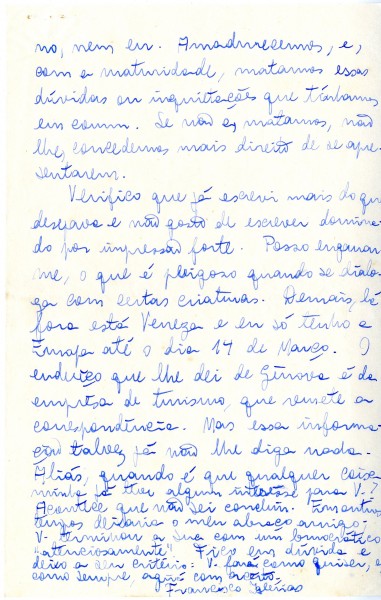 no, nem eu. Amadurecemos, e,
com a maturidade, matamos essas
dúvidas ou inquietações que tínhamos
em comum. Se não as matamos, não
lhes concedemos mais direito de se apre-
sentarem.
Verifico que já escrevi mais do que
desejava e não gosto de escrever domina-
do por impressão forte. Posso enganar-
me, o que é perigoso quando se dialo-
ga com certas criaturas. Demais, lá
fora está Veneza e eu só tenho a
Europa até o dia 14 de Março. O
endereço que lhe dei de Gênova é da
empresa de turismo, que remete a
correspondência. Mas essa informa-
ção talvez já não lhe diga nada.
Aliás, quando é que qualquer coisa
minha já teve algum interesse para V.?
Acontece que não sei concluir. Em outros
tempos deixaria o meu abraço amigo:
V. terminou a sua com um burocrático
"atenciosamente". Fico em dúvida e
deixo a seu critério: V. fará como quiser, e
como sempre, aqui com
Francisco Iglésias